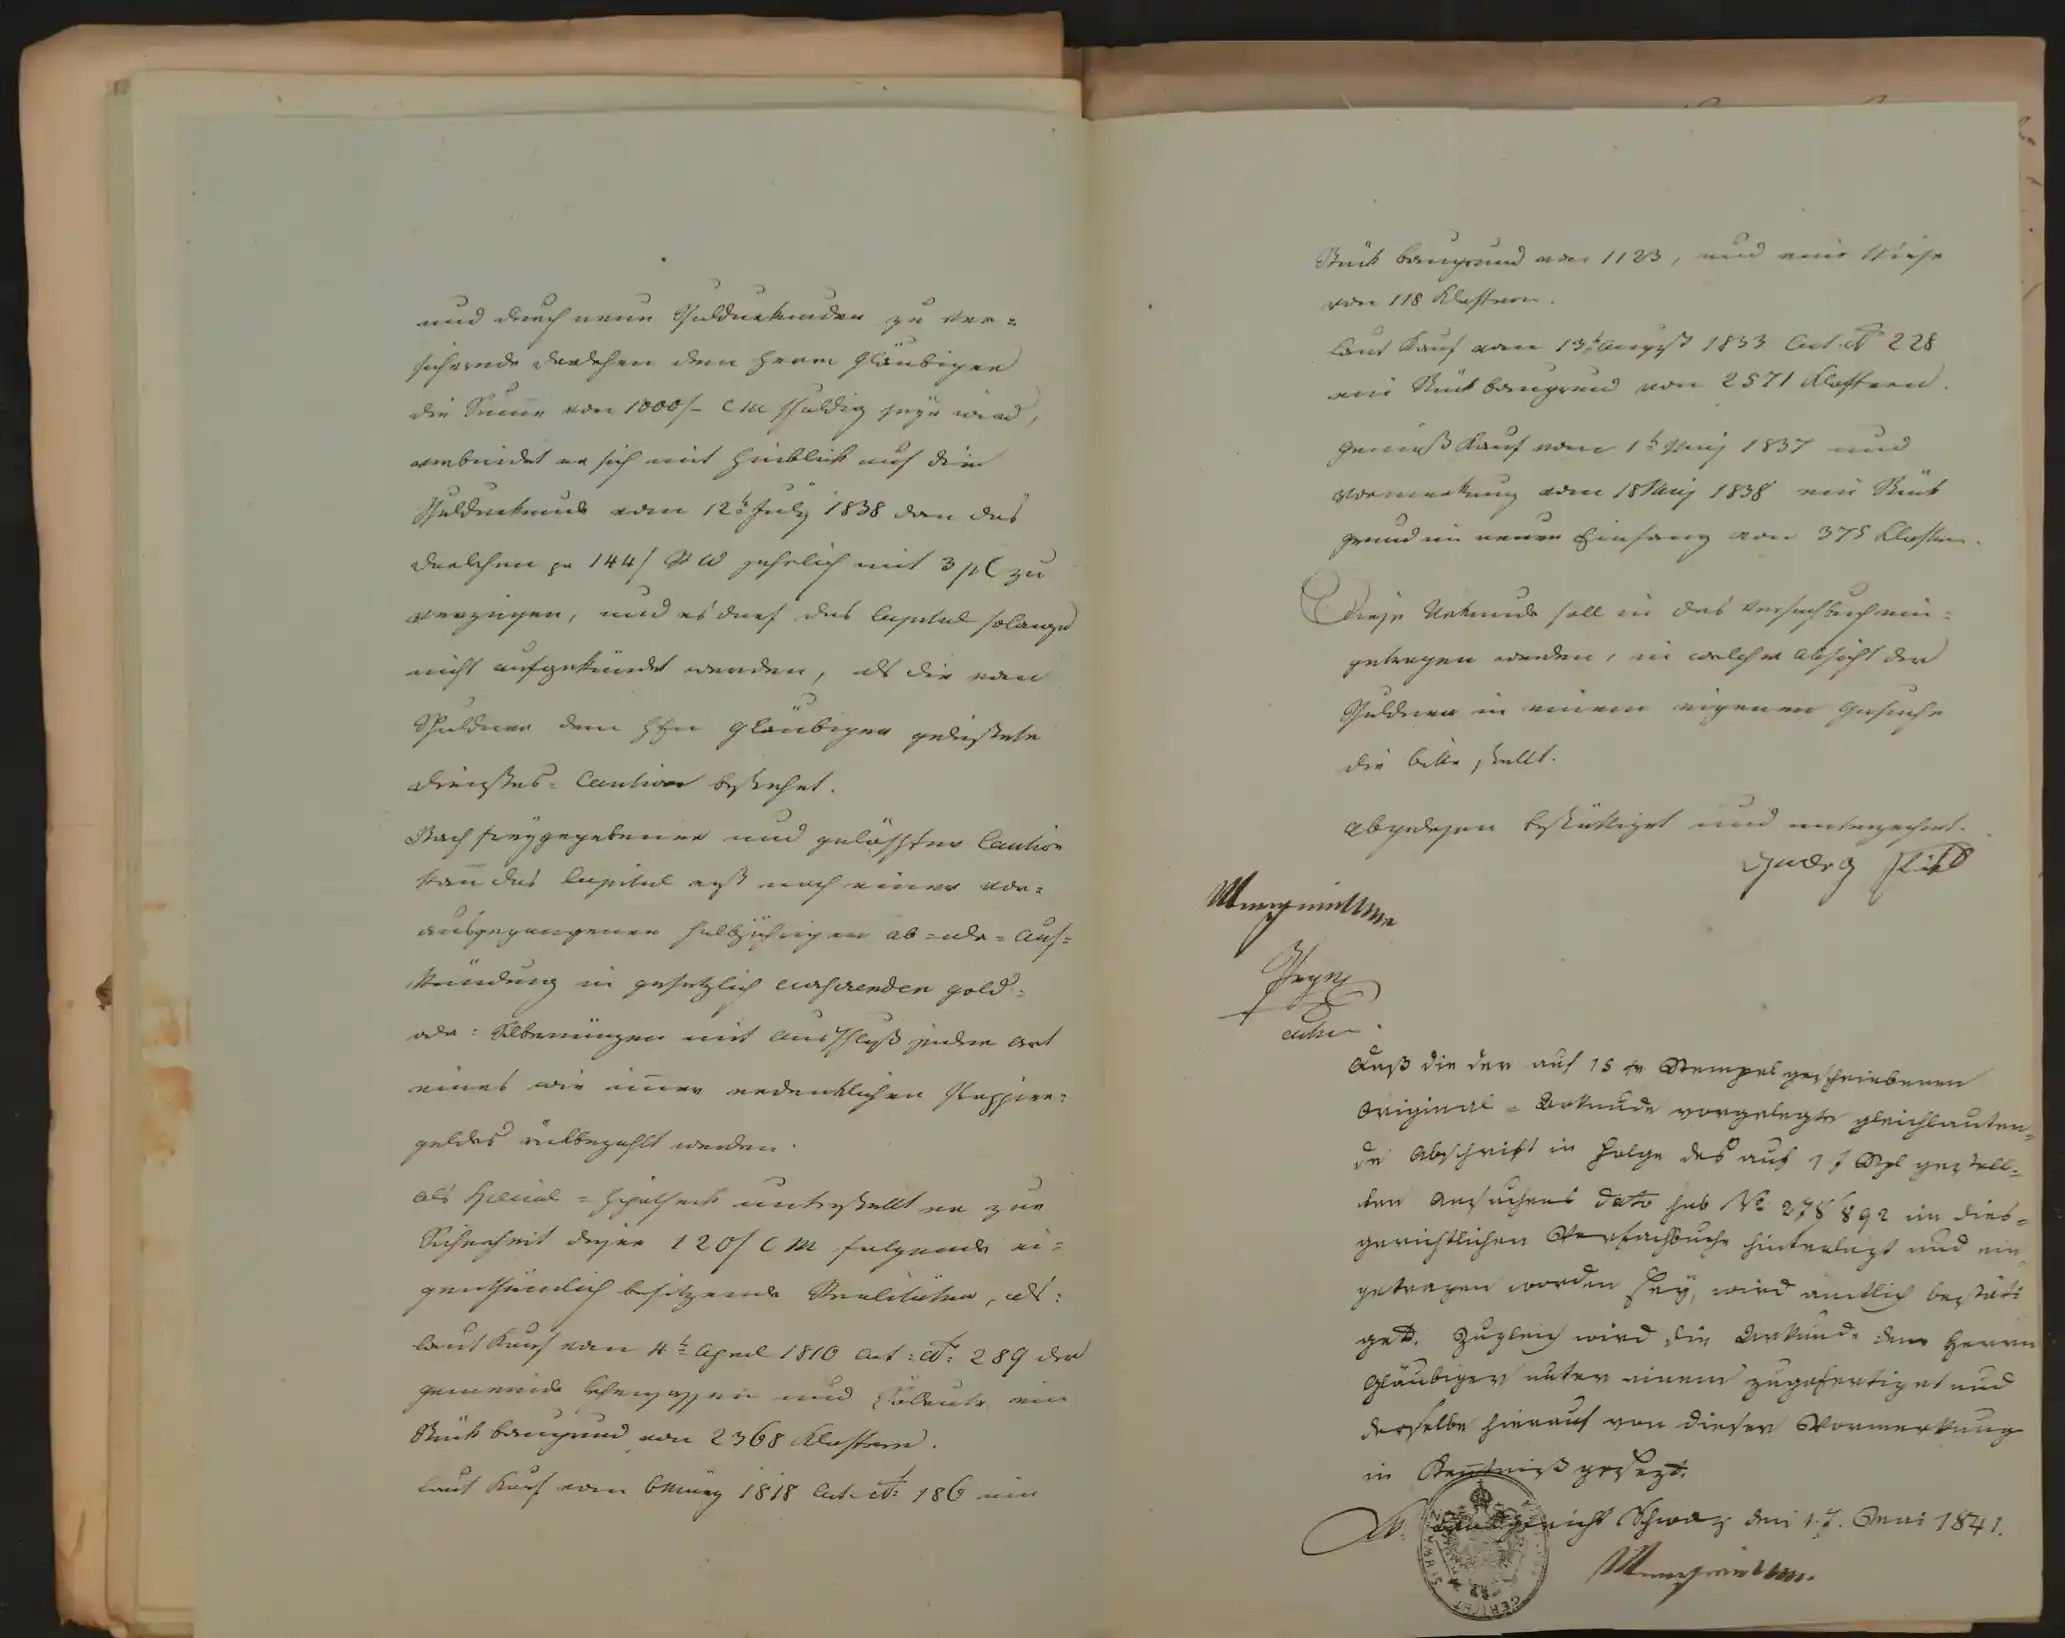 und durch neue Schuldurkunden zu ver=
sichernde Darlehen dem Herrn Gläubiger
die Summe von 1000 f C M schuldig seyn wird,
verbindet er sich mit Hinblick auf die
Schuldurkunde vom 12t July 1838 von das
Darlehen pr 144 f R W jährlich mit 3 pC zu
verzinsen, und es darf das Capital solange
nicht aufgekündet werden, als die vom
Schuldner dem Hrn Gläubiger geleistete
Dienstes= Caution bestehet.
Nach freygegebener und gelöschter Caution
kann das Capital erst nach einer vor=
ausgegangenen halbjährigen Ab= oder = Auf=
kündung in gesetzlich cursirenden Gold=
oder: Silbermünzen mit Ausschluß jeder Art
eines wie immer erdenklichen Papier=
geldes rückbezahlt werden.
Als Special = Hypotheck unterstellt er zur
Sicherheit dieser 120 f C M folgende ei=
genthümlich besitzende Realitäten, als:
laut Kauf vom 4t April 1810 Cat: N: 289 der
Gemeinde und ein
Stück Baugrund von 2368 Klaftern.
laut Kauf vom 6 März 1818 Cat. N: 186 ein
Stück Baugrund von 1123, und eine Wiese
von 118 Klaftern.
laut Kauf vom 13t August 1833 Cat. N 228
ein Stück Baugrund von 2571 Klaftern.
Gemäß Kauf vom 1t May 1837 und
Vormerkung vom 18 May 1838 ein Stück
Grund im neuen Einfang von 375 Klaftern.
Diese Urkunde soll in das Verfachbuch ein=
getragen werden, in welcher Absicht der
Schuldner in einem eigenen Gesuche
die Bitte stellt.
Abgelesen bestättiget und unterzeichnet.
Georg
Daß die der auf 15 xr Stempel geschriebenen
Original = Urkunde vorgelegte gleichlauten=
de Abschrift in Folge des auf Stpl gestell=
ten Ansuchens dato sub No 278/892 im dies=
gerichtlichen Verfachbuche hinterlegt und ein=
getragen worden sey, wird amtlich bestäti
get. Zugleich wird die Urkunde dem Herrn
Gläubiger unter einem zugefertiget und
derselbe hierauf von dieser Vormerkung
in Kenntniß gesezt.
Landgericht Schwaz den Juni 1841.